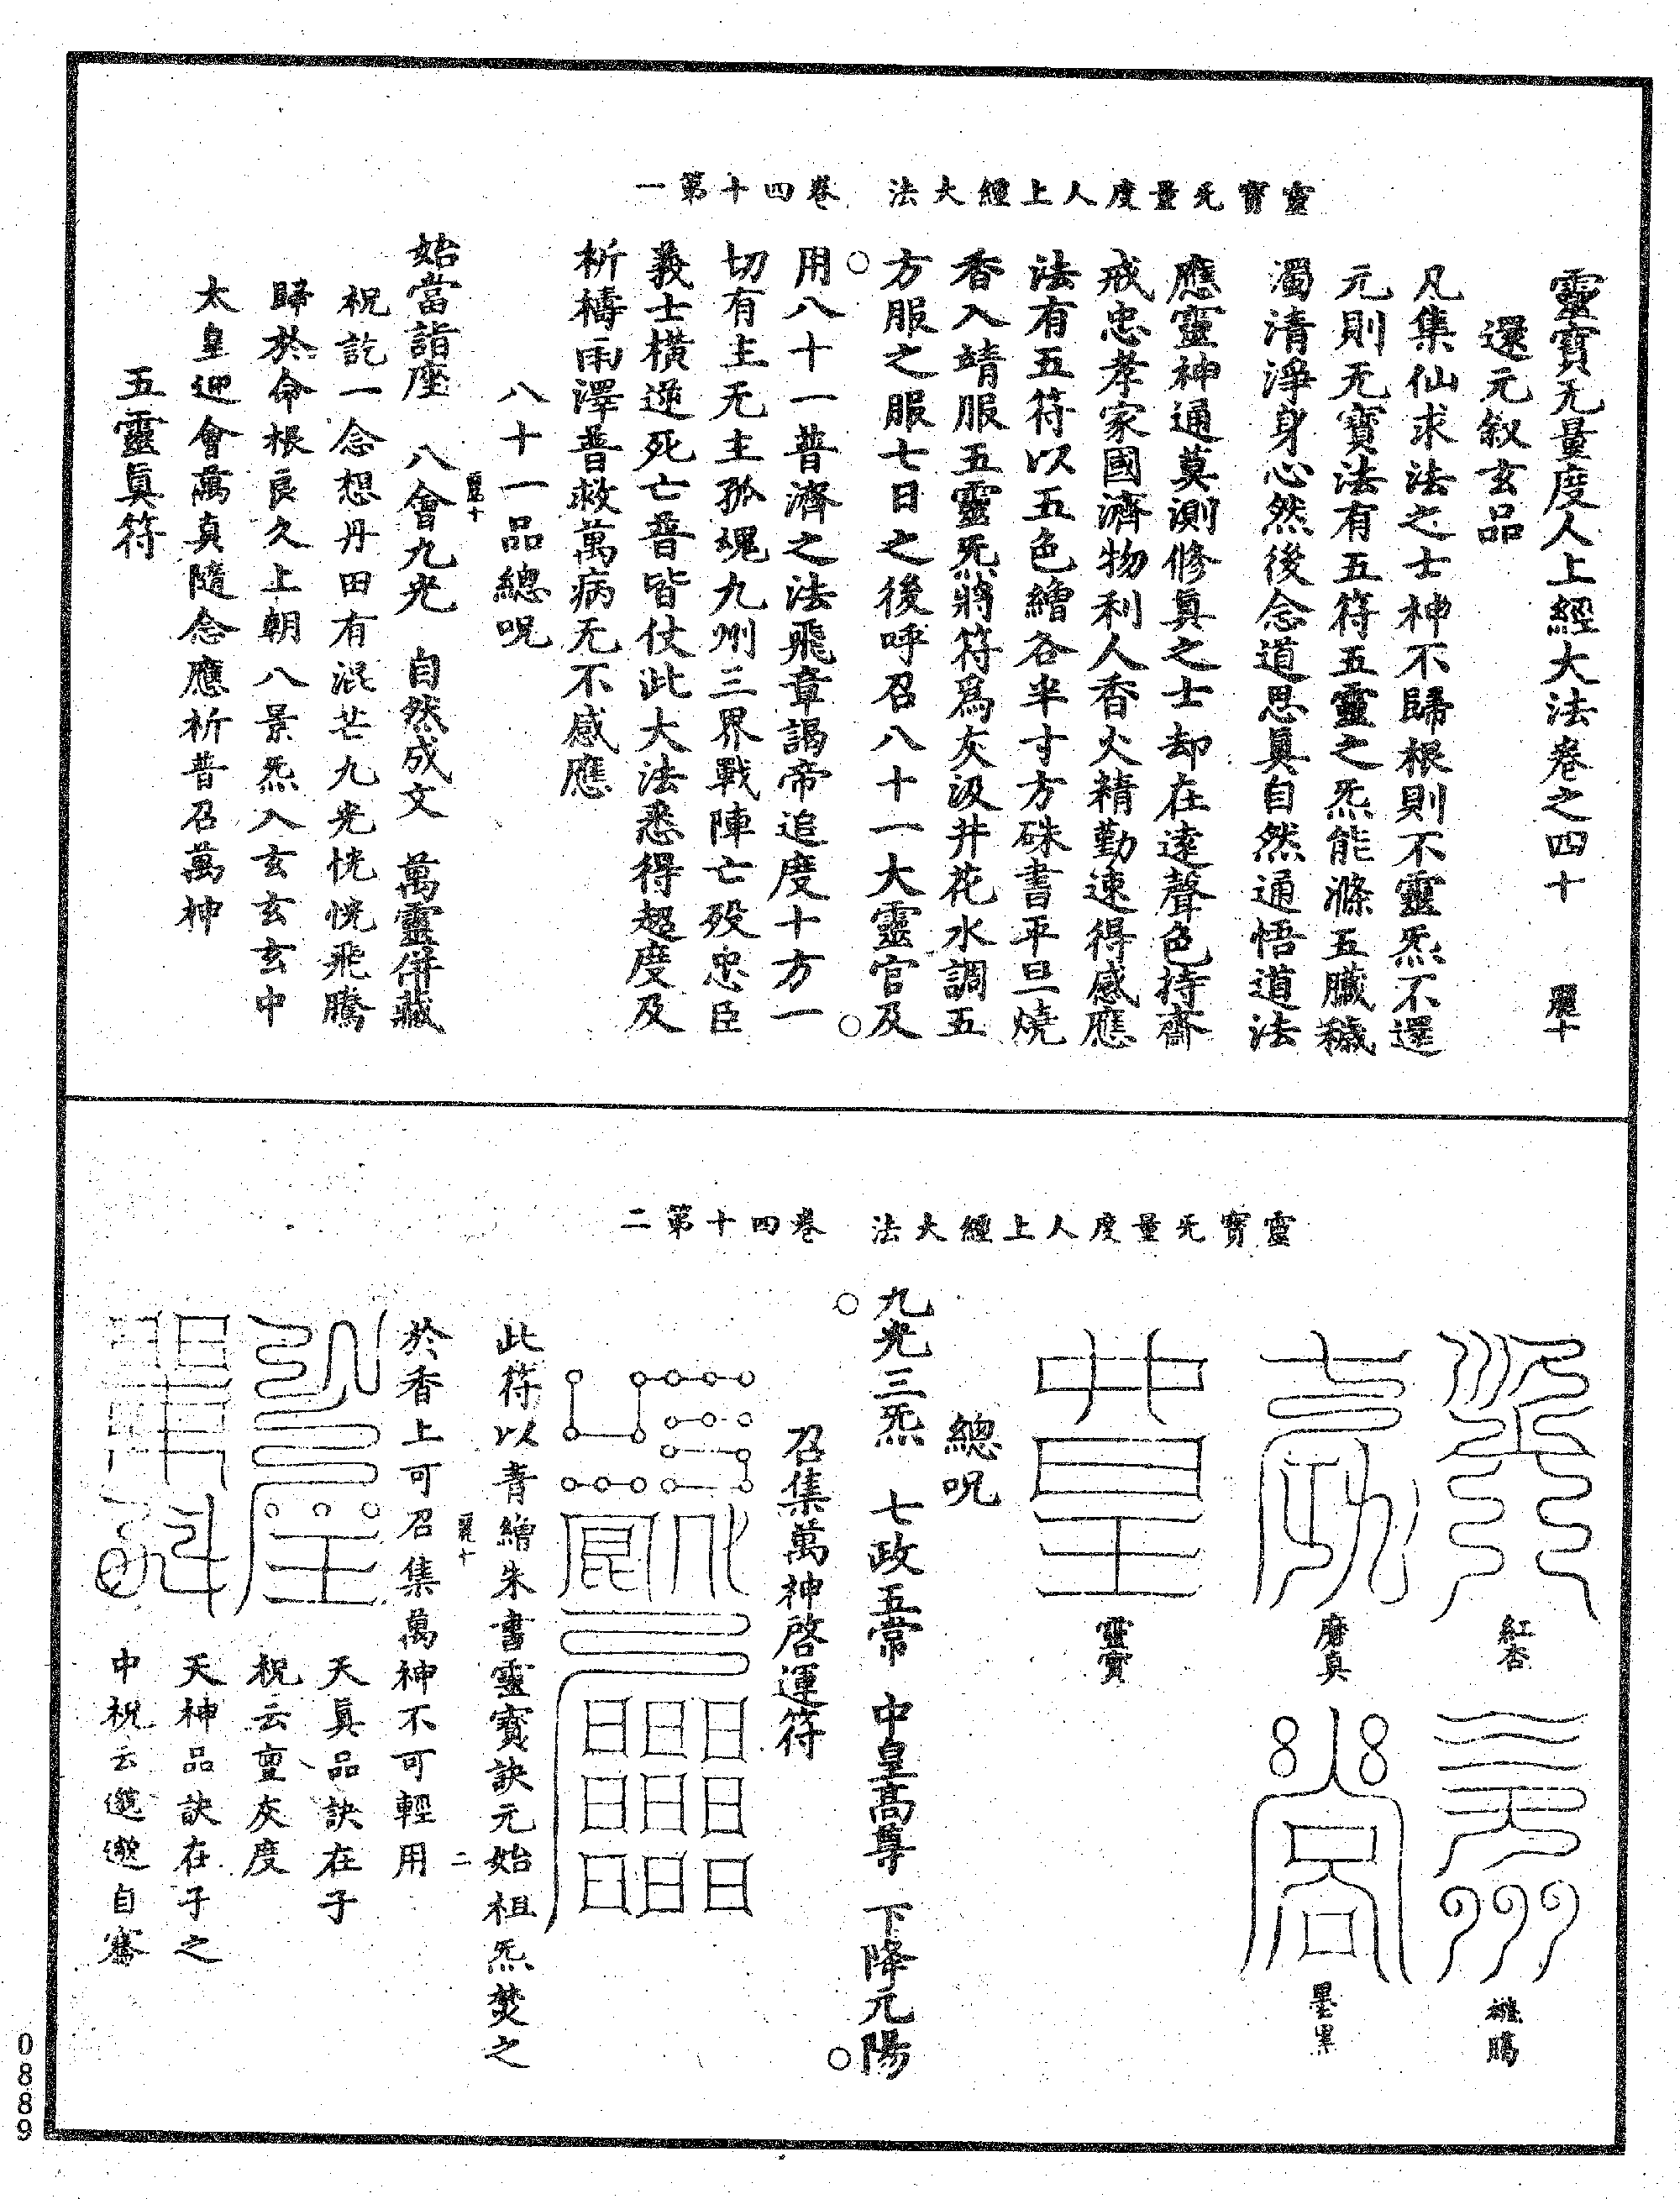 靈寳无量度人上經大法 卷四十第一
靈寳无量度人上經大法卷之四十
還元叙玄品
凡集仙求法之士神不歸根則不靈炁不還
元則无寳法有五符五靈之炁能滌五臟穢
濁清淨身心然後念道思眞自然通悟道法
應靈神通莫測修眞之士却在遠聲色持齋
戒忠孝家國濟物利人香火精勤速得感應
法有五符以五色繒各半寸方硃書平旦燒
香入靖服五靈炁將符爲灰汲井花水調五
方服之服七日之後呼召八十一大靈官及
○用八十一普濟之法飛章謁帝追度十方一○
切有主无主孤魂九州三界戰陣亡殁忠臣
義士橫逆死亡普皆仗此大法悉得超度及
祈禱雨澤普救萬病无不感應
八十一品總呪
始當詣座 八會九光 自然成文 萬靈併藏
祝訖一念想丹田有混芒九光恍恍飛騰
歸於命根良久上朝八景炁入玄玄玄中
太皇迎會萬真隨念應祈普召萬神
五靈眞符
靈寳无量度人上經大法 卷四十第二
紅杏
雄鵰
磨真
墨杲
靈寳
總呪
○九光三炁 七政五常 中皇高尊 下降元陽○
召集萬神啓運符
此符以青繒朱書靈寳訣元始祖炁焚之
於香上可召集萬神不可輕用
二
天眞品訣在子
祝云亶灰度
天神品訣在子之
中祝云邈邈自騫
0889